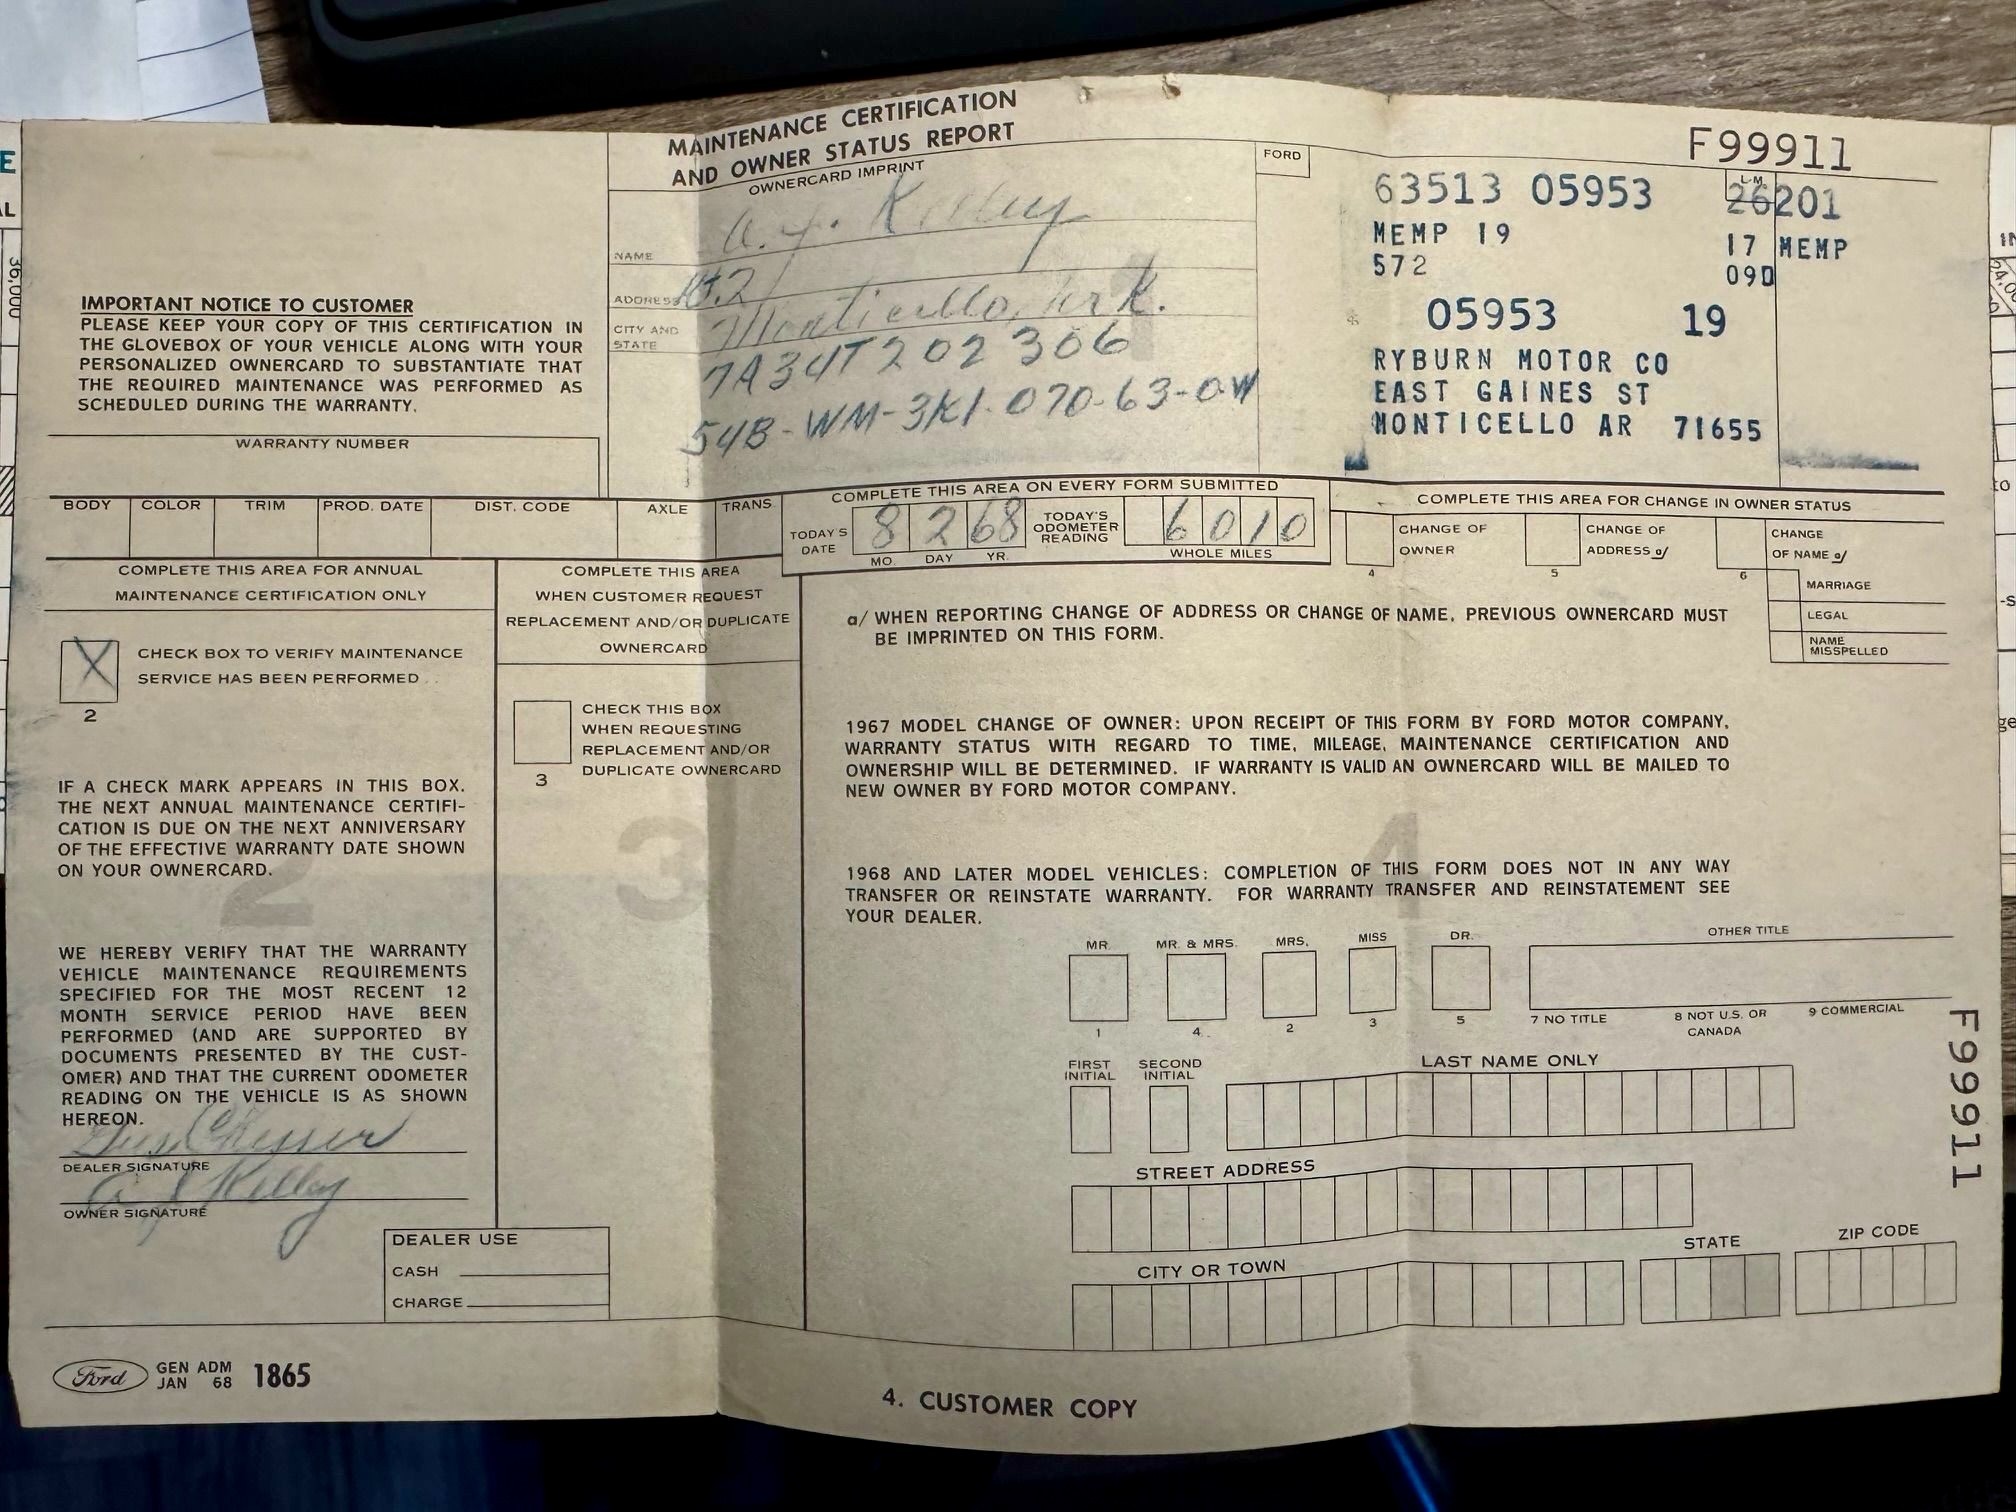 MAINTENANCE CERTIFICATION
AND OWNER STATUS REPORT
OWNERCARD IMPRINT
FORD
F99911
63513 05953
L-M
26201
MEMP 19
17 MEMP
572
09D
05953 19
RYBURN MOTOR CO
EAST GAINES ST
MONTICELLO AR 71655
NAME
Kelley
ADDRESS
CITY AND
STATE
Monticello, Ark.
7A34T202306
54B-WM-3K1-070-63-0W
IMPORTANT NOTICE TO CUSTOMER
PLEASE KEEP YOUR COPY OF THIS CERTIFICATION IN
THE GLOVEBOX OF YOUR VEHICLE ALONG WITH YOUR
PERSONALIZED OWNERCARD TO SUBSTANTIATE THAT
THE REQUIRED MAINTENANCE WAS PERFORMED AS
SCHEDULED DURING THE WARRANTY.
WARRANTY NUMBER
BODY COLOR TRIM PROD. DATE DIST. CODE AXLE TRANS
COMPLETE THIS AREA ON EVERY FORM SUBMITTED
TODAY'S
DATE
8 2 68
MO. DAY YR.
TODAY'S
ODOMETER
READING
6010
WHOLE MILES
COMPLETE THIS AREA FOR CHANGE IN OWNER STATUS
CHANGE OF
OWNER
4
CHANGE OF
ADDRESS a/
5
CHANGE
OF NAME a/
6
MARRIAGE
LEGAL
NAME
MISSPELLED
COMPLETE THIS AREA FOR ANNUAL
MAINTENANCE CERTIFICATION ONLY
X
CHECK BOX TO VERIFY MAINTENANCE
SERVICE HAS BEEN PERFORMED . .
2
IF A CHECK MARK APPEARS IN THIS BOX.
THE NEXT ANNUAL MAINTENANCE CERTIFI-
CATION IS DUE ON THE NEXT ANNIVERSARY
OF THE EFFECTIVE WARRANTY DATE SHOWN
ON YOUR OWNERCARD.
2
WE HEREBY VERIFY THAT THE WARRANTY
VEHICLE MAINTENANCE REQUIREMENTS
SPECIFIED FOR THE MOST RECENT 12
MONTH SERVICE PERIOD HAVE BEEN
PERFORMED (AND ARE SUPPORTED BY
DOCUMENTS PRESENTED BY THE CUST-
OMER) AND THAT THE CURRENT ODOMETER
READING ON THE VEHICLE IS AS SHOWN
HEREON.
DEALER SIGNATURE
Kelley
OWNER SIGNATURE
DEALER USE
CASH
CHARGE
COMPLETE THIS AREA
WHEN CUSTOMER REQUEST
REPLACEMENT AND/OR DUPLICATE
OWNERCARD
CHECK THIS BOX
WHEN REQUESTING
REPLACEMENT AND/OR
DUPLICATE OWNERCARD
3
3
a/ WHEN REPORTING CHANGE OF ADDRESS OR CHANGE OF NAME, PREVIOUS OWNERCARD MUST
BE IMPRINTED ON THIS FORM.
1967 MODEL CHANGE OF OWNER: UPON RECEIPT OF THIS FORM BY FORD MOTOR COMPANY,
WARRANTY STATUS WITH REGARD TO TIME, MILEAGE, MAINTENANCE CERTIFICATION AND
OWNERSHIP WILL BE DETERMINED. IF WARRANTY IS VALID AN OWNERCARD WILL BE MAILED TO
NEW OWNER BY FORD MOTOR COMPANY.
4
1968 AND LATER MODEL VEHICLES: COMPLETION OF THIS FORM DOES NOT IN ANY WAY
TRANSFER OR REINSTATE WARRANTY. FOR WARRANTY TRANSFER AND REINSTATEMENT SEE
YOUR DEALER.
MR. MR. & MRS. MRS. MISS DR. OTHER TITLE
1 4 2 3 5 7 NO TITLE 8 NOT U.S. OR
CANADA
9 COMMERCIAL
FIRST
INITIAL
SECOND
INITIAL
LAST NAME ONLY
STREET ADDRESS
CITY OR TOWN
STATE
ZIP CODE
F99911
Ford
GEN ADM
JAN 68
1865
4. CUSTOMER COPY
36,000